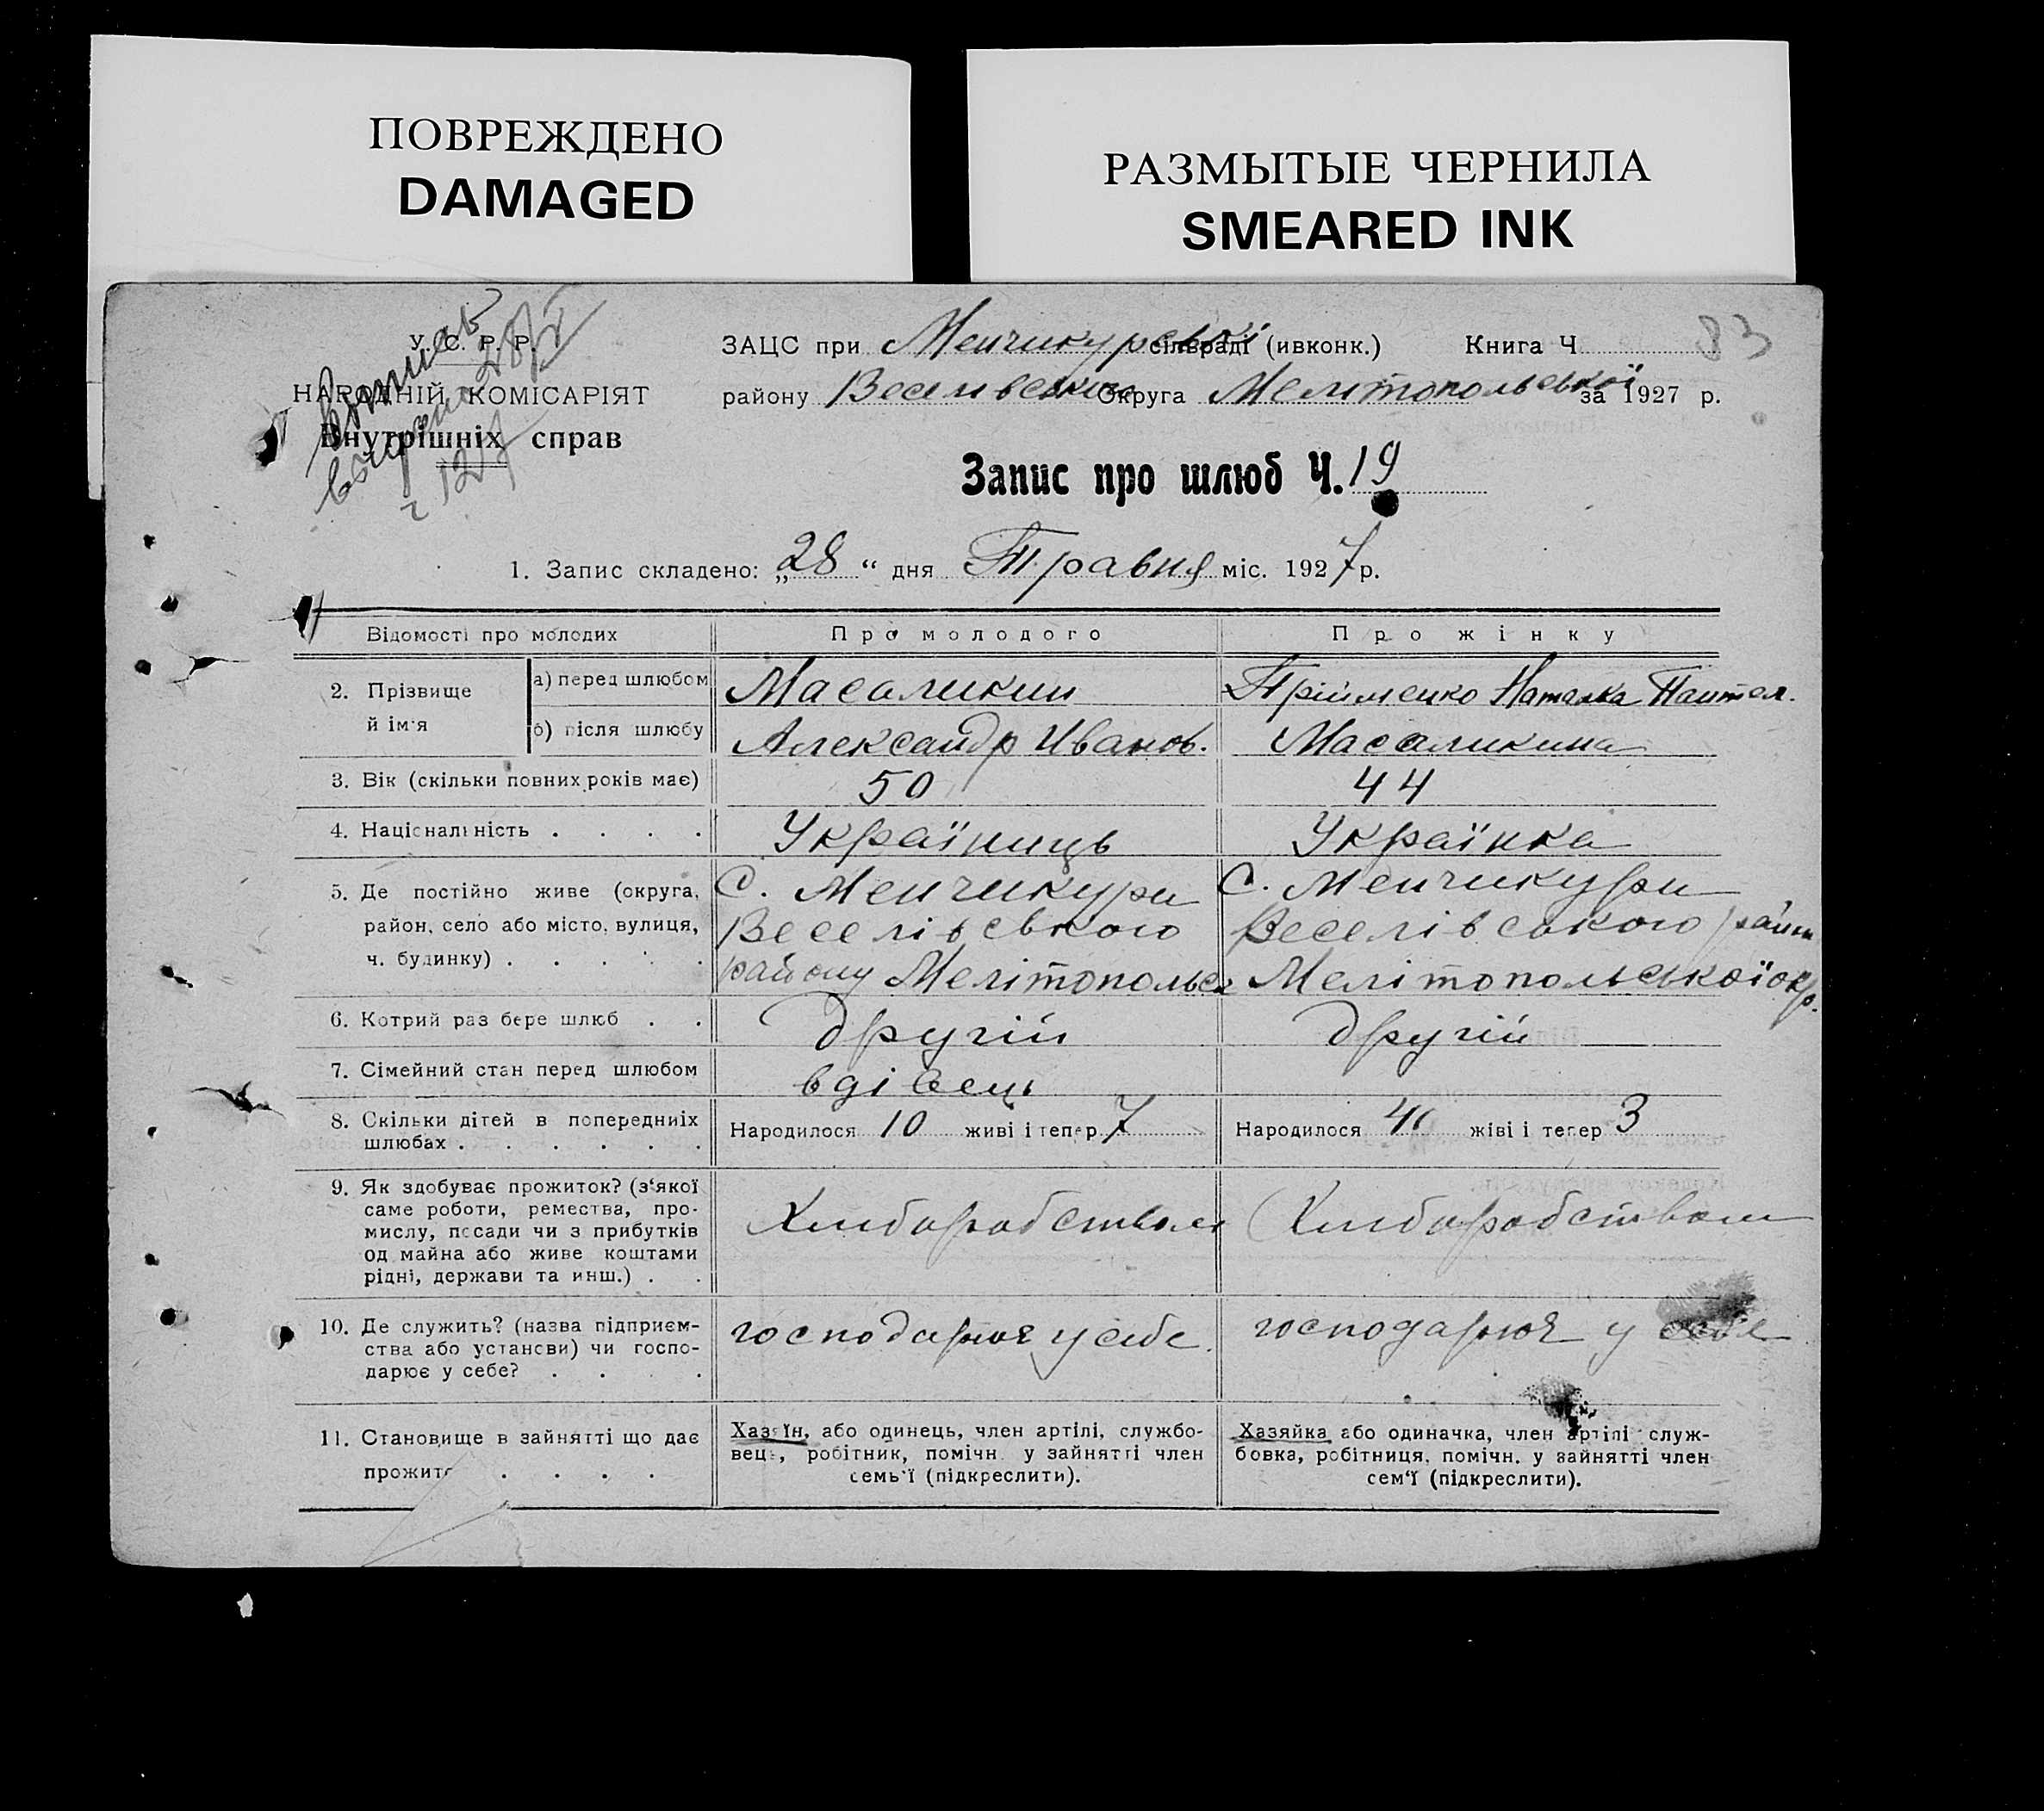 ПОВРЕЖДЕНО
DAMAGED
РАЗМЫТЫЕ ЧЕРНИЛА
SMEARED INK
У. С. Р. Р.
НАРОДНІЙ КОМІСАРІЯТ
Внутрішніх справ
ЗАЦС при Менчикурскі сільраді (ивконк.) Книга Ч 83
району Веселівського Округа Мелітопольської за 1927 р.
Запис про шлюб Ч. 19
1. Запис складено: „28“ дня Травня міс. 1927 р.
Відомості про молодих Про молодого Про жінку
2. Прізвище й ім'я а) перед шлюбом Масаликин Прійменко Наталка Пантел.
б) після шлюбу Александр Иванов. Масаликина
3. Вік (скільки повних років має) 50 44
4. Національність . . . . Україниць Українка
5. Де постійно живе (округа, С. Менчикури С. Менчикури
район, село або місто, вулиця, Веселівського Веселівського район
ч. будинку) . . . . . району Мелітопольск Мелітопольської окр.
6. Котрий раз бере шлюб . . другій другій
7. Сімейний стан перед шлюбом вдівець
8. Скільки дітей в попередниіх Народилося 10 живі і тепер 7 Народилося 4 жіві і тепер 3
шлюбах . . . . . .
9. Як здобуває прожиток? (з‘якої
саме роботи, ремества, про-
мислу, посади чи з прибутків Хлиборобством Хлиборобством
од майна або живе коштами
рідні, держави та инш.) . .
10. Де служить? (назва підприєм- господарює у себе. господарює у себе
ства або установи) чи госпо-
дарює у себе? . . . .
11. Становище в зайнятті що дає
прожиток . . . .
Хазяїн, або одинець, член артілі, службо-
вець, робітник, помічн. у зайнятті член
семь'ї (підкреслити).
Хазяйка або одиначка, член артілі служ-
бовка, робітниця, помічн. у зайнятті член
сем‘ї (підкреслити).